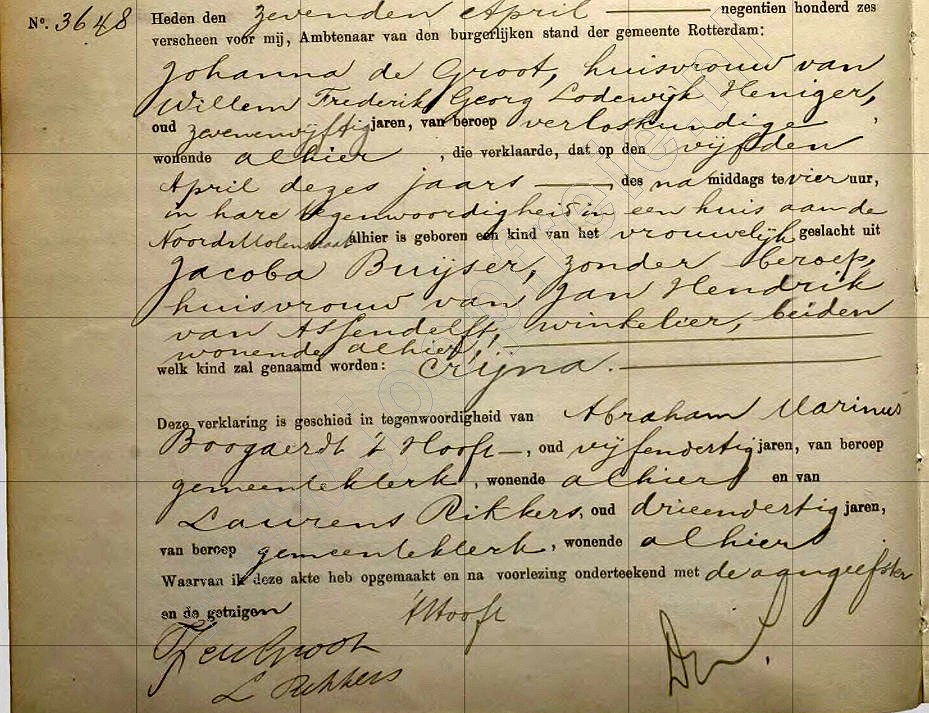 Nº. 3648
Heden den zevenden April negentien honderd zes
verscheen voor mij, Ambtenaar van den burgerlijken stand der gemeente Rotterdam:
Johanna de Groot, huisvrouw van
Willem Frederik Georg Lodewijk Heniger,
oud zevenenvijftig jaren, van beroep verloskundige,
wonende alhier, die verklaarde, dat op den vijfden
April dezes jaars des na middags te vier uur,
in hare tegenwoordigheid in een huis aan de
Noordmolenstraat alhier is geboren een kind van het vrouwelijk geslacht uit
Jacoba Buijser, zonder beroep,
huisvrouw van Jan Hendrik
van Assendelft, winkelier, beiden
wonende alhier,
welk kind zal genaamd worden: Crijna.
Deze verklaring is geschied in tegenwoordigheid van Abraham Marinus
Boogaerdt 't Hooft, oud vijfendertig jaren, van beroep
gemeenteklerk, wonende alhier en van
Laurens Rikkers, oud drieendertig jaren,
van beroep gemeenteklerk, wonende alhier
Waarvan ik deze akte heb opgemaakt en na voorlezing onderteekend met de aangeefster
en de getuigen
't Hooft
J de Groot
L Rikkers